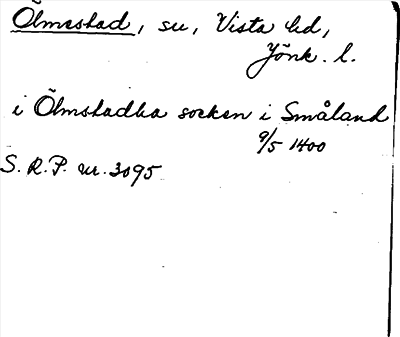 Ölmestad, sn, Vista hd,
Jönk. l.
i Ölmstadha socken i Småland
9/5 1400
S. R. P. nr. 3095